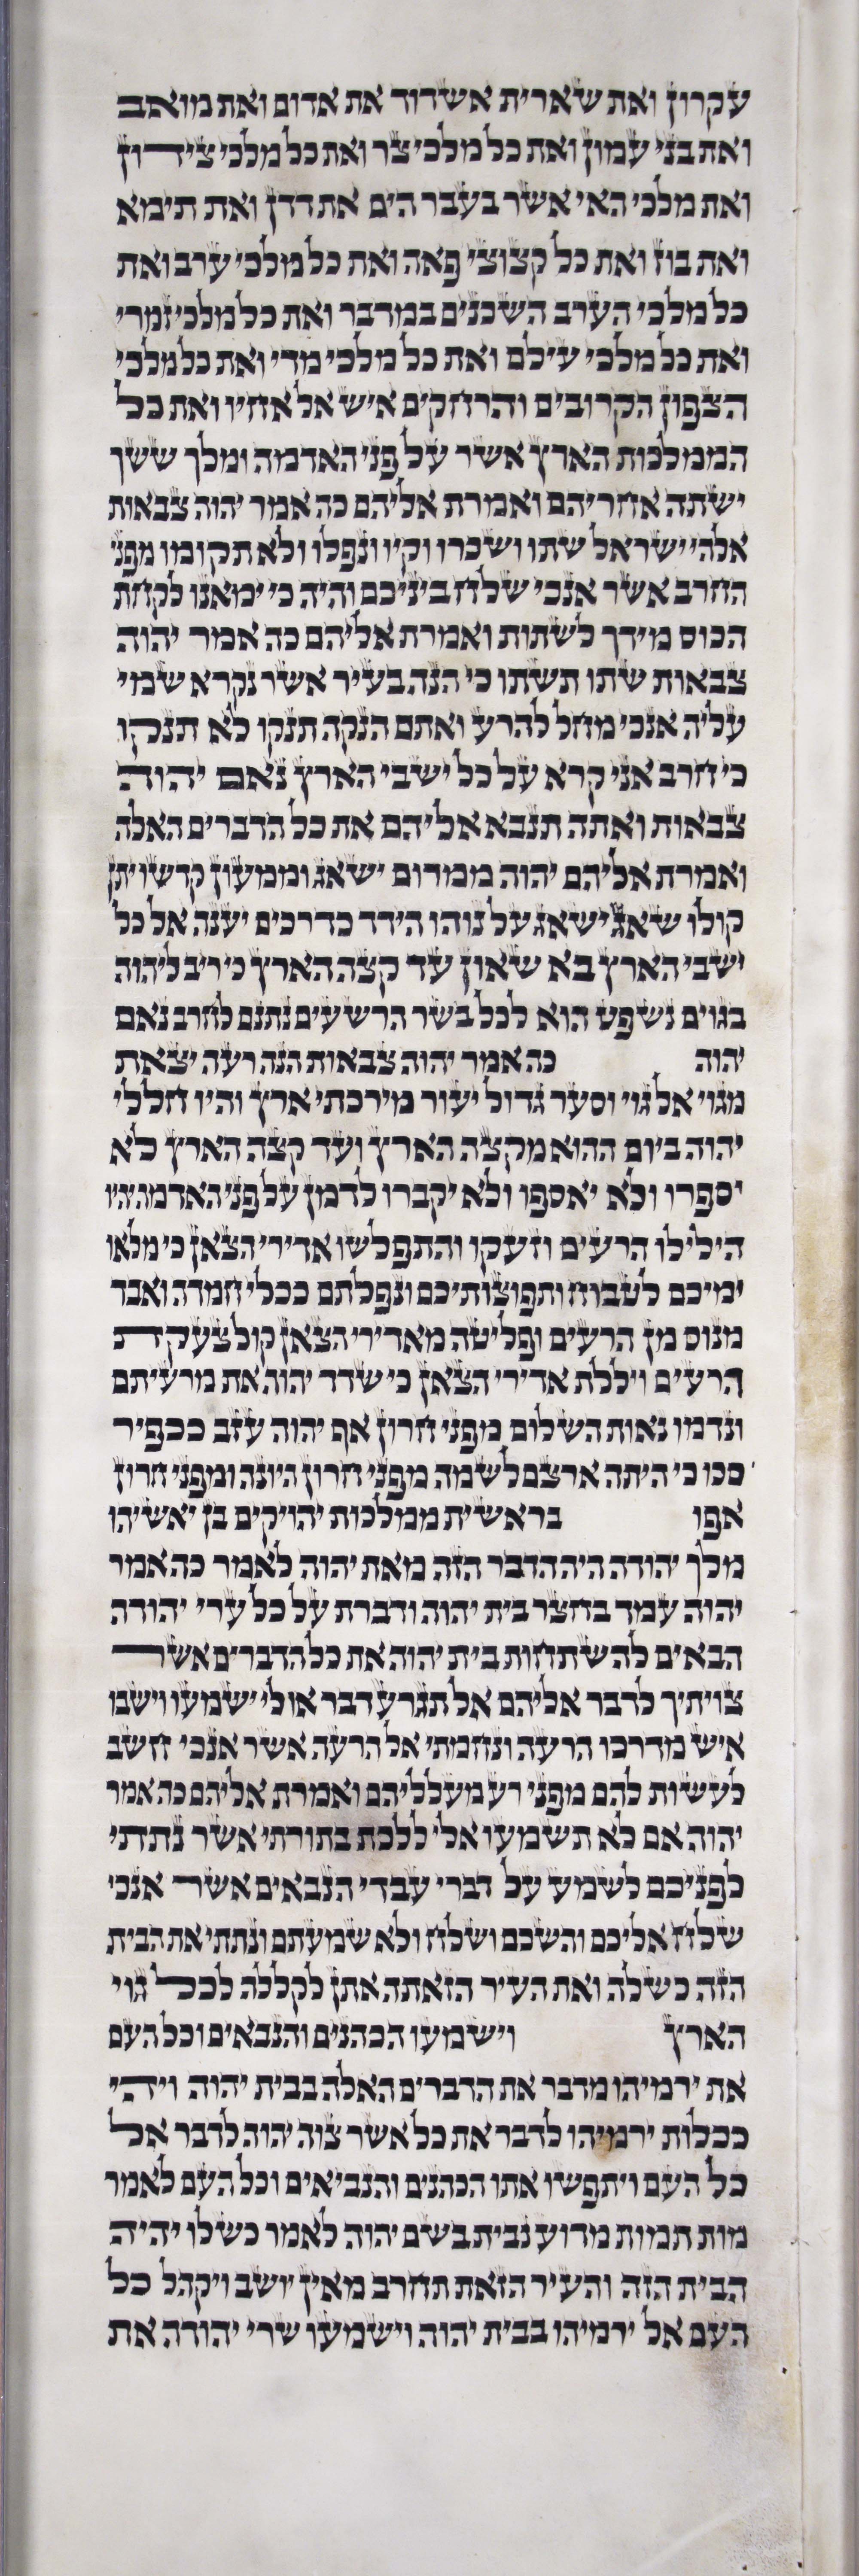 עקרון ואת שארית אשדוד את אדום ואת מואב
ואת בני עמון ואת כל מלכי צר ואת כל מלכי צידון
ואת מלכי האי אשר בעבר הים את דדן ואת תימא
ואת בוז ואת כל קצוצי פאה ואת כל מלכי ערב ואת
כל מלכי הערב השכנים במדבר ואת כל מלכי זמרי
ואת כל מלכי עילם ואת כל מלכי מדי ואת כל מלכי
הצפון הקרובים והרחקים איש אל אחיו ואת כל
הממלכות הארץ אשר על פני האדמה ומלך ששך
ישתה אחריהם ואמרת אליהם כה אמר יהוה צבאות
אלהי ישראל שתו ושכרו וקיו ונפלו ולא תקומו מפני
החרב אשר אנכי שלח ביניכם והיה כי ימאנו לקחת
הכוס מידך לשתות ואמרת אליהם כה אמר יהוה
צבאות שתו תשתו כי הנה בעיר אשר נקרא שמי
עליה אנכי מחל להרע ואתם הנקה תנקו לא תנקו
כי חרב אני קרא על כל ישבי הארץ נאם יהוה
צבאות ואתה תנבא אליהם את כל הדברים האלה
ואמרת אליהם יהוה ממרום ישאג וממעון קדשו יתן
קולו שאג ישאג על נוהו הידד כדרכים יענה אל כל
ישבי הארץ בא שאון עד קצה הארץ כי ריב ליהוה
בגוים נשפט הוא לכל בשר הרשעים נתנם לחרב נאם
יהוה כה אמר יהוה צבאות הנה רעה יצאת
מגוי אל גוי וסער גדול יעור מירכתי ארץ והיו חללי
יהוה ביום ההוא מקצה הארץ ועד קצה הארץ לא
יספדו ולא יאספו ולא יקברו לדמן על פני האדמה יהיו
הילילו הרעים וזעקו והתפלשו אדירי הצאן כי מלאו
ימיכם לטבוח ותפוצותיכם ונפלתם ככלי חמדה ואבד
מנוס מן הרעים ופליטה מאדירי הצאן קול צעקת
הרעים ויללת אדירי הצאן כי שדד יהוה את מרעיתם
ונדמו נאות השלום מפני חרון אף יהוה עזב ככפיר
סכו כי היתה ארצם לשמה מפני חרון היונה ומפני חרון
אפו בראשית ממלכות יהויקים בן יאשיהו
מלך יהודה היה הדבר הזה מאת יהוה לאמר כה אמר
יהוה עמד בחצר בית יהוה ודברת על כל ערי יהודה
הבאים להשתחות בית יהוה את כל הדברים אשר
צויתיך לדבר אליהם אל תגרע דבר אולי ישמעו וישבו
איש מדרכו הרעה ונחמתי אל הרעה אשר אנכי חשב
לעשות להם מפני רע מעלליהם ואמרת אליהם כה אמר
יהוה אם לא תשמעו אלי ללכת בתורתי אשר נתתי
לפניכם לשמע על דברי עבדי הנבאים אשר אנכי
שלח אליכם והשכם ושלח ולא שמעתם ונתתי את הבית
הזה כשלה ואת העיר הזאתה אתן לקללה לכל גוי
הארץ וישמעו הכהנים והנבאים וכל העם
את ירמיהו מדבר את הדברים האלה בבית יהוה ויהי
ככלות ירמיהו לדבר את כל אשר צוה יהוה לדבר אל
כל העם ויתפשו אתו הכהנים והנביאים וכל העם לאמר
מות תמות מדוע נבית בשם יהוה לאמר כשלו יהיה
הבית הזה והעיר הזאת תחרב מאין יושב ויקהל כל
העם אל ירמיהו בבית יהוה וישמעו שרי יהודה את